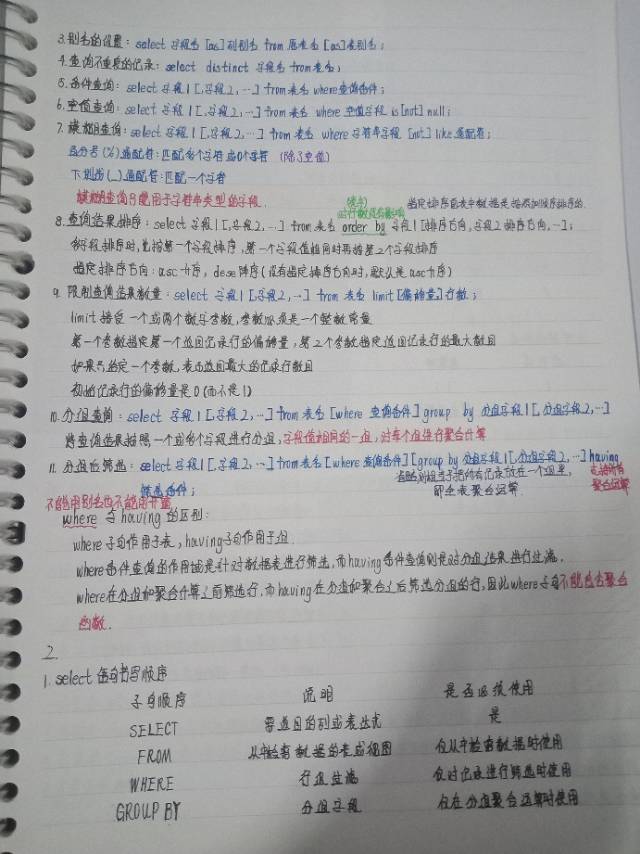 3.别名的设置：select 字段名 [as] 列别名 from 原表名 [as] 表别名；
4.查询不重复的记录：select distinct 字段名 from 表名；
5.条件查询：select 字段1 [,字段2,…] from 表名 where 查询条件；
6.空值查询：select 字段1 [,字段2,…] from 表名 where 空值字段 is [not] null；
7.模糊查询：select 字段1 [,字段2,…] from 表名 where 字符串字段 [not] like 通配符；
百分号(%)通配符：匹配多个字符或0个字符 (除了空值)
下划线(_)通配符：匹配一个字符
模糊查询只能用于字符串类型的字段.
对行数没有影响
指定排序能表中数据是按添加顺序排序的.
8.查询结果排序：select 字段1 [,字段2,…] from 表名 order by 字段1 [排序方向,字段2 排序方向,…]；
多字段排序时,先按第一个字段排序,第一个字段值相同时再按第2个字段排序
指定排序方向：asc升序, desc降序(没有指定排序方向时,默认是asc升序)
9.限制查询结果数量：select 字段1 [,字段2,…] from 表名 limit [偏移量,] 行数；
limit接受一个或两个数字参数,参数必须是一个整数常量
第一个参数指定第一个返回记录行的偏移量,第2个参数指定返回记录行的最大数目
如果只给定一个参数,表示返回最大的记录行数目
初始记录行的偏移量是0(而不是1)
10.分组查询：select 字段1 [,字段2,…] from 表名 [where 查询条件] group by 分组字段1 [,分组字段2,…]
将查询结果按照一个或多个字段进行分组,字段值相同的一组,对每个组进行聚合计算
11.分组后筛选：select 字段1 [,字段2,…] from 表名 [where 查询条件] [group by 分组字段1 [,分组字段2,…] having
筛选条件；
所有记录放在一个组里,
即全表聚合运算.
聚合运算
不能用别名也不能用开窗
where 与 having 的区别：
where子句作用于表, having子句作用于组.
where条件查询的作用域是针对数据表进行筛选,而having条件查询则是对分组结果进行过滤.
where在分组和聚合计算之前筛选行,而having在分组和聚合之后筛选分组的行,因此where子句不能包含聚合
函数.
2.
1.select 语句书写顺序
子句顺序 说明 是否必须使用
SELECT 要返回的列或表达式 是
FROM 从中检索数据的表或视图 仅从中检索数据时使用
WHERE 行级过滤 仅对记录进行筛选时使用
GROUP BY 分组字段 仅在分组聚合运算时使用